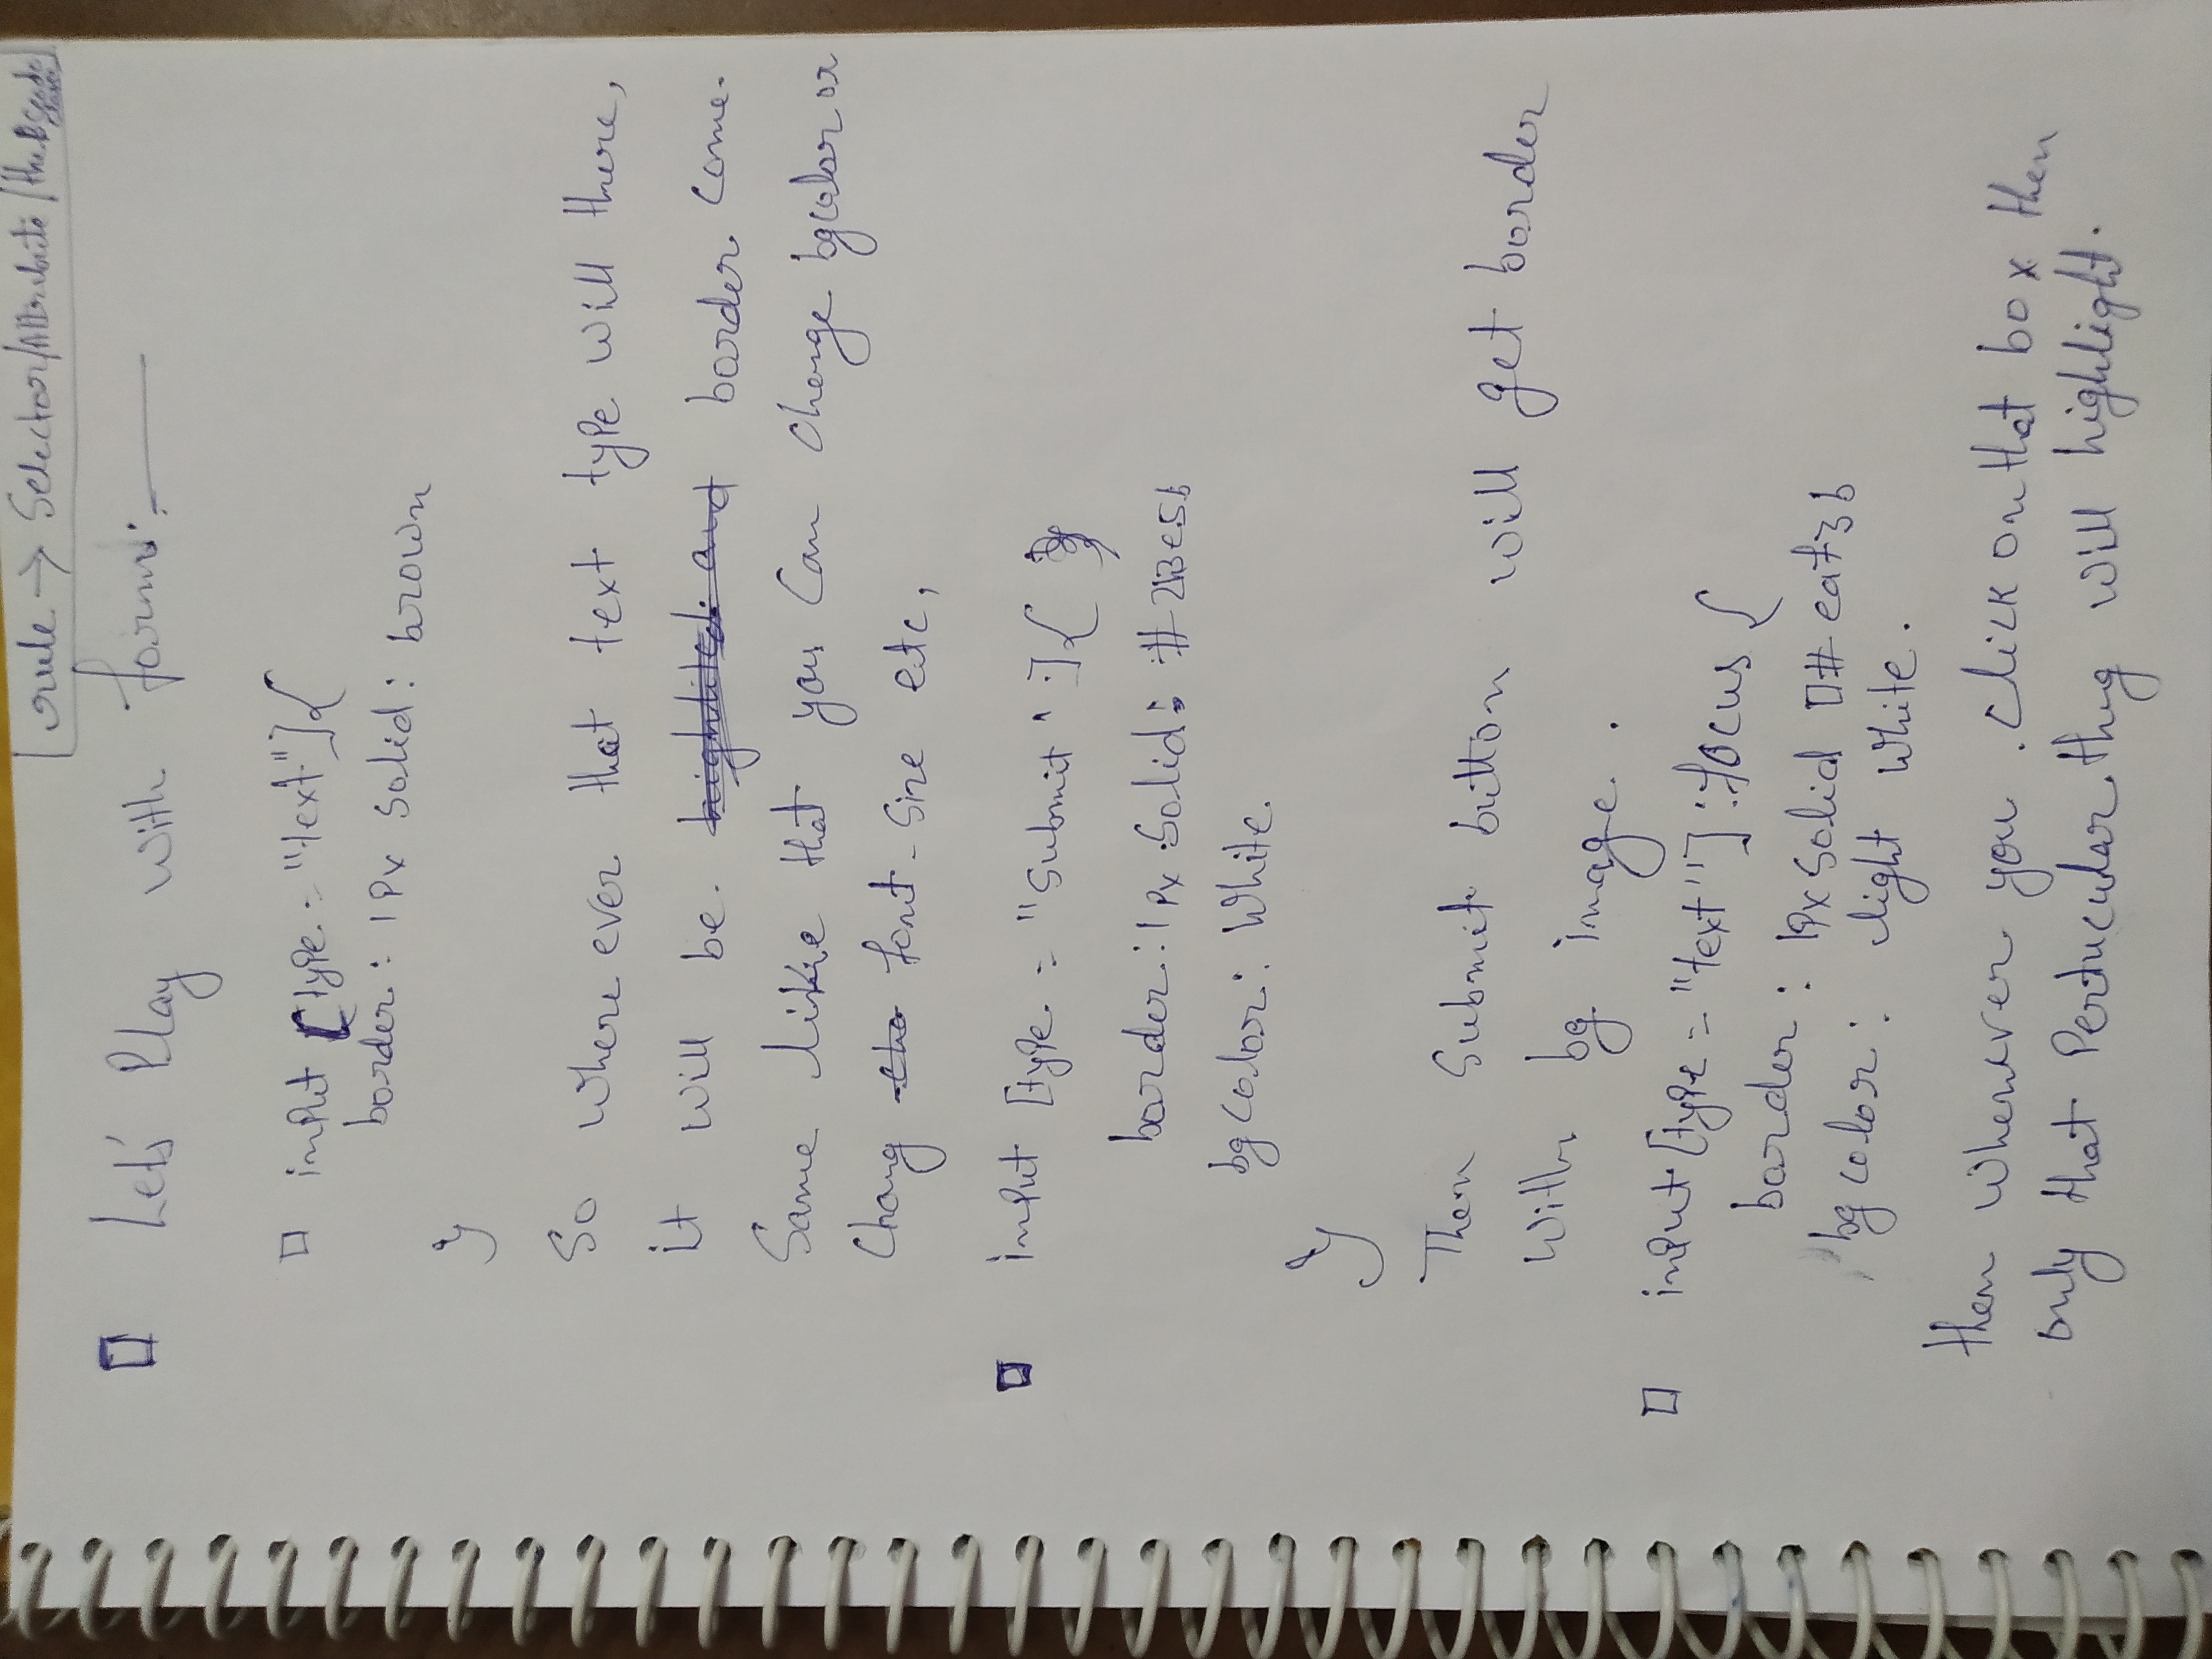 rule → Selector/Attribute/
□ Let's Play with forms:—
□ input [type = "text"]{
border: 1Px solid: brown
}
So where ever that text type will there,
it will be. highlited and border come.
Same like that you can change bgcolor or
Chang font-size etc,
□ input [type = "submit"]{
border: 1Px solid; #2B3e56
bgcolor: White.
}
Then Submit button will get border
with bg image.
□ input [type = "text"]:focus {
border: 1Px solid #eaf3b
bgcolor: light white.
then whenever you click on that box then
only that Perticular thing will highlight.